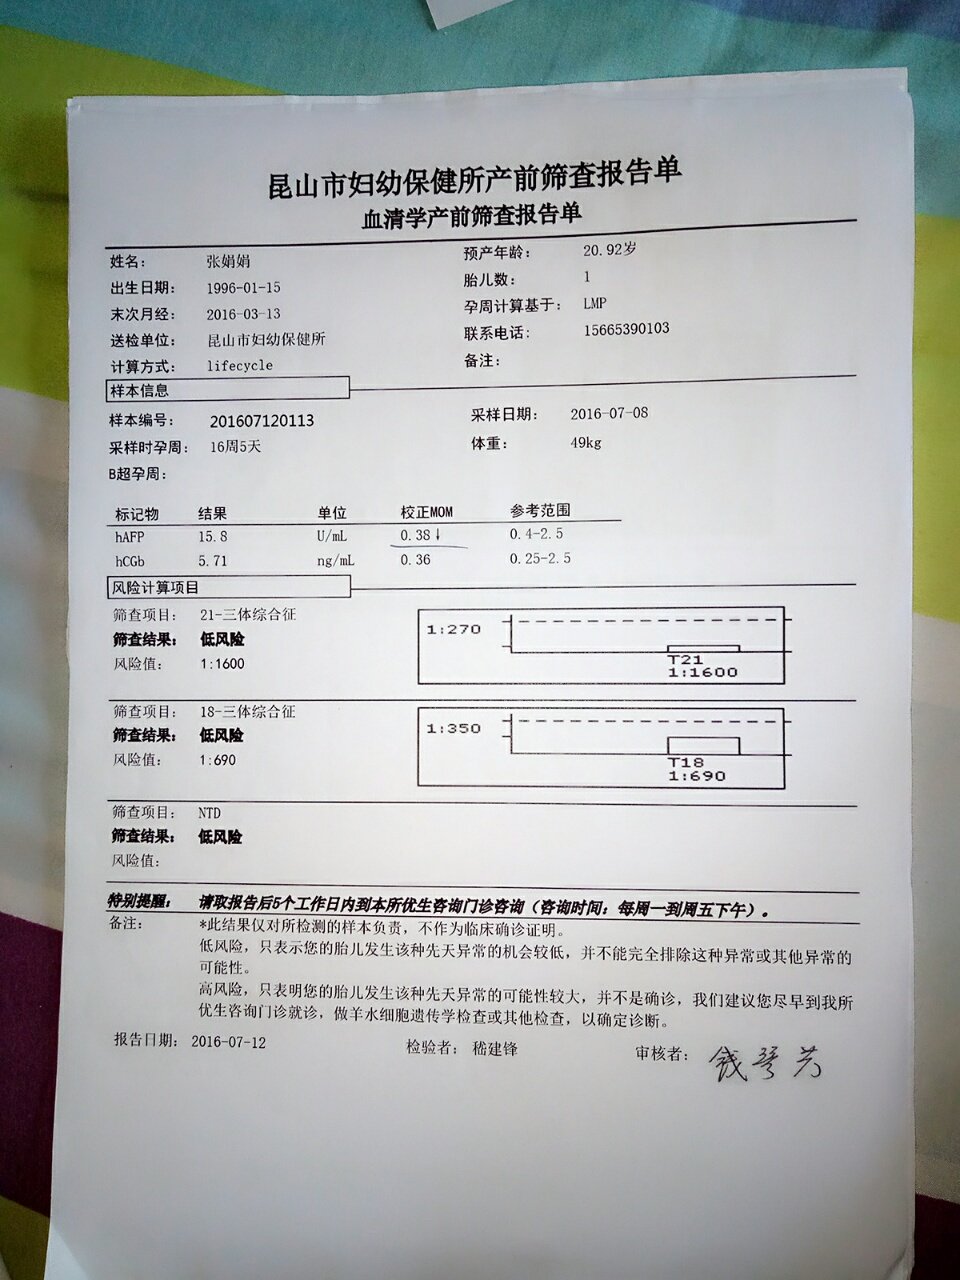 昆山市妇幼保健所产前筛查报告单
血清学产前筛查报告单
姓名: 张娟娟 预产年龄: 20.92岁
出生日期: 1996-01-15 胎儿数: 1
末次月经: 2016-03-13 孕周计算基于: LMP
送检单位: 昆山市妇幼保健所 联系电话: 15665390103
计算方式: lifecycle 备注:
样本信息
样本编号: 201607120113 采样日期: 2016-07-08
采样时孕周: 16周5天 体重: 49kg
B超孕周:
标记物 结果 单位 校正MOM 参考范围
hAFP 15.8 U/mL 0.38↓ 0.4-2.5
hCGb 5.71 ng/mL 0.36 0.25-2.5
风险计算项目
筛查项目: 21-三体综合征
筛查结果: 低风险
风险值: 1:1600
1:270
T21
1:1600
筛查项目: 18-三体综合征
筛查结果: 低风险
风险值: 1:690
1:350
T18
1:690
筛查项目: NTD
筛查结果: 低风险
风险值:
特别提醒: 请取报告后5个工作日内到本所优生咨询门诊咨询（咨询时间：每周一到周五下午）。
备注: *此结果仅对所检测的样本负责，不作为临床确诊证明。
低风险，只表示您的胎儿发生该种先天异常的机会较低，并不能完全排除这种异常或其他异常的
可能性。
高风险，只表明您的胎儿发生该种先天异常的可能性较大，并不是确诊，我们建议您尽早到我所
优生咨询门诊就诊，做羊水细胞遗传学检查或其他检查，以确定诊断。
报告日期: 2016-07-12 检验者: 嵇建锋 审核者: 钱琴芳